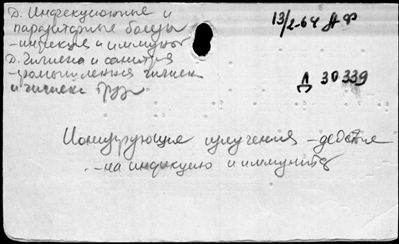 Д. Инфекционные и
паразитарные болезн
-инфекция и иммунит
Д. Гигиена и санитария
-промышленная гигиен
и гигиена труд
13/2-64
Д 30339
Ионизирующие излучения -действие
-на инфекцию и иммунитет